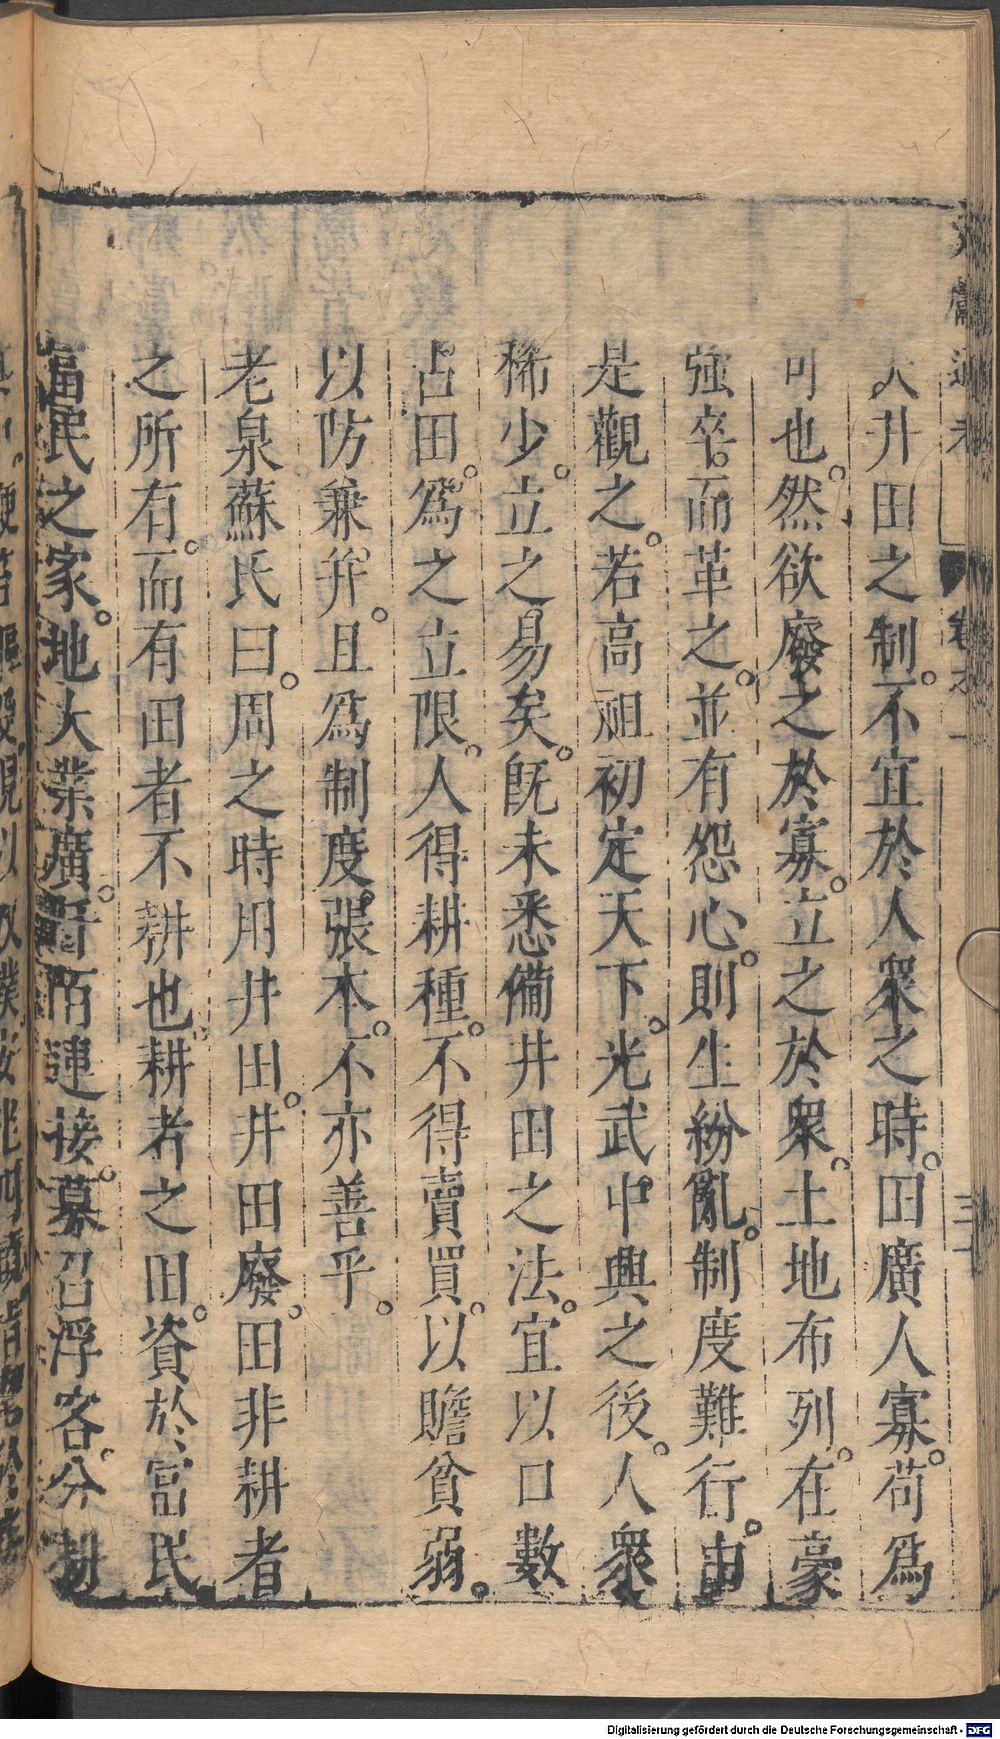 文獻通考
卷之一
三十
夫井田之制。不宜於人衆之時。田廣人寡。苟爲
可也。然欲廢之於寡。立之於衆。土地布列。在豪
強卒。而革之。並有怨心。則生紛亂。制度難行。由
是觀之。若高祖初定天下。光武中興之後。人衆
稀少。立之易矣。旣未悉備井田之法。宜以口數
占田。爲之立限。人得耕種。不得賣買。以贍貧弱。
以防兼幷。且爲制度張本。不亦善乎。
老泉蘇氏曰。周之時用井田。井田廢。田非耕者
之所有。而有田者不耕也。耕者之田。資於富民
富民之家。地大業廣。阡陌連接。募召浮客。分割
Digitalisierung gefördert durch die Deutsche Forschungsgemeinschaft - DFG